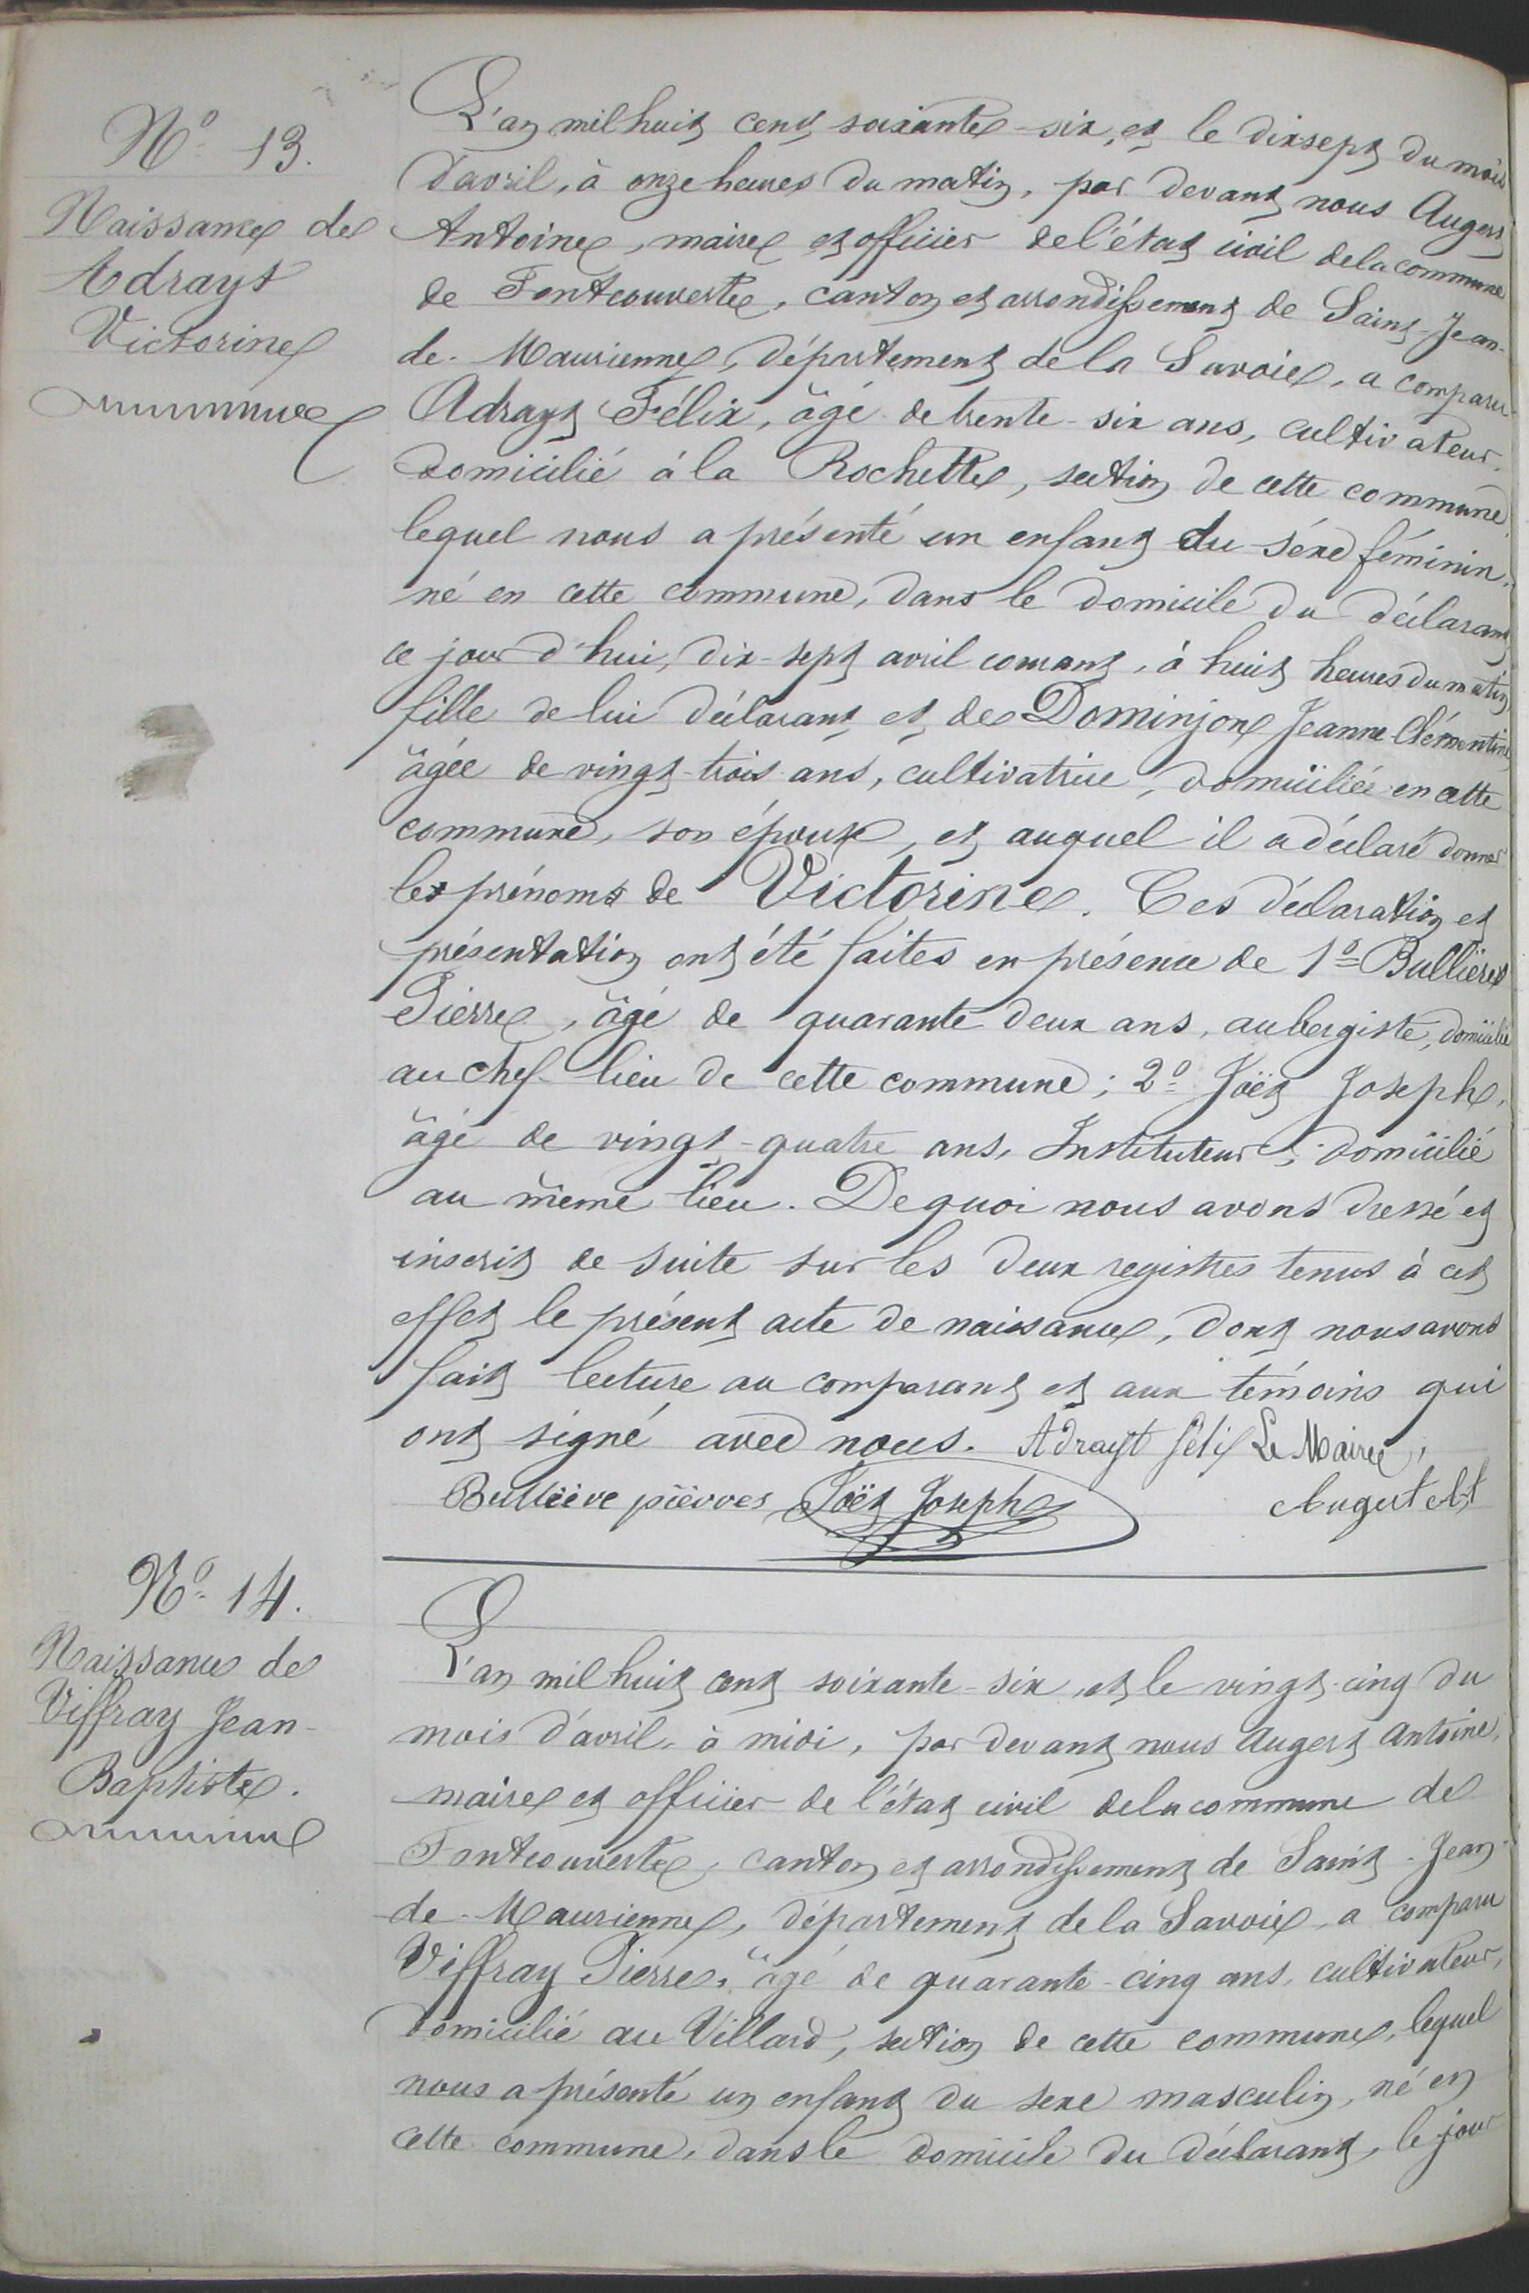 N° 13.
Naissance de
Adrayt
Victorine
L'an mil huit cent soixante-six, et le dix sept du mois
d'avril, à onze heures du matin, par devant nous Augert
Antoine, maire et officier de l'état civil de la commune
de Fontcouverte, canton et arrondissement de Saint-Jean-
de-Maurienne, département de la Savoie, a comparu
Adrayt Félix, âgé de trente-six ans, cultivateur,
domicilié à la Rochette, section de cette commune,
lequel nous a présenté un enfant du séxe féminin,
né en cette commune, dans le domicile du déclarant
ce jour d'hui, dix-sept avril courant, à huit heures du matin,
fille de lui déclarant et de Dominjon Jeanne Clémentine,
âgée de vingt-trois ans, cultivatrice, domiciliée en cette
commune, son épouse, et auquel il a déclaré donner
les prénoms de Victorine. Ces déclaration et
présentation ont été faites en présence de 1° Bullière
Pierre, âgé de quarante deux ans, aubergiste, domicilié
au chef-lieu de cette commune; 2° Joët Joseph,
âgé de vingt-quatre ans, Instituteur, domicilié
au même lieu. De quoi nous avons dressé et
inscrit de suite sur les deux registres tenus à cet
effet le présent acte de naissance, dont nous avons
fait lecture au comparant et aux témoins qui
ont signé avec nous. Adrayt félix Le Maire,
Bullière pierres Joët Joseph Augert Ant
N° 14.
Naissance de
Viffray Jean-
Baptiste.
L'an mil huit cent soixante-six, et le vingt-cinq du
mois d'avril, à midi, par devant nous Augert Antoine,
maire et officier de l'état civil de la commune de
Fontcouverte, canton et arrondissement de Saint-Jean-
de-Maurienne, département de la Savoie, a comparu
Viffray Pierre, âgé de quarante-cinq ans, cultivateur,
domicilié au Villard, section de cette commune, lequel
nous a présenté un enfant du sexe masculin, né en
cette commune, dans le domicile du déclarant, le jour